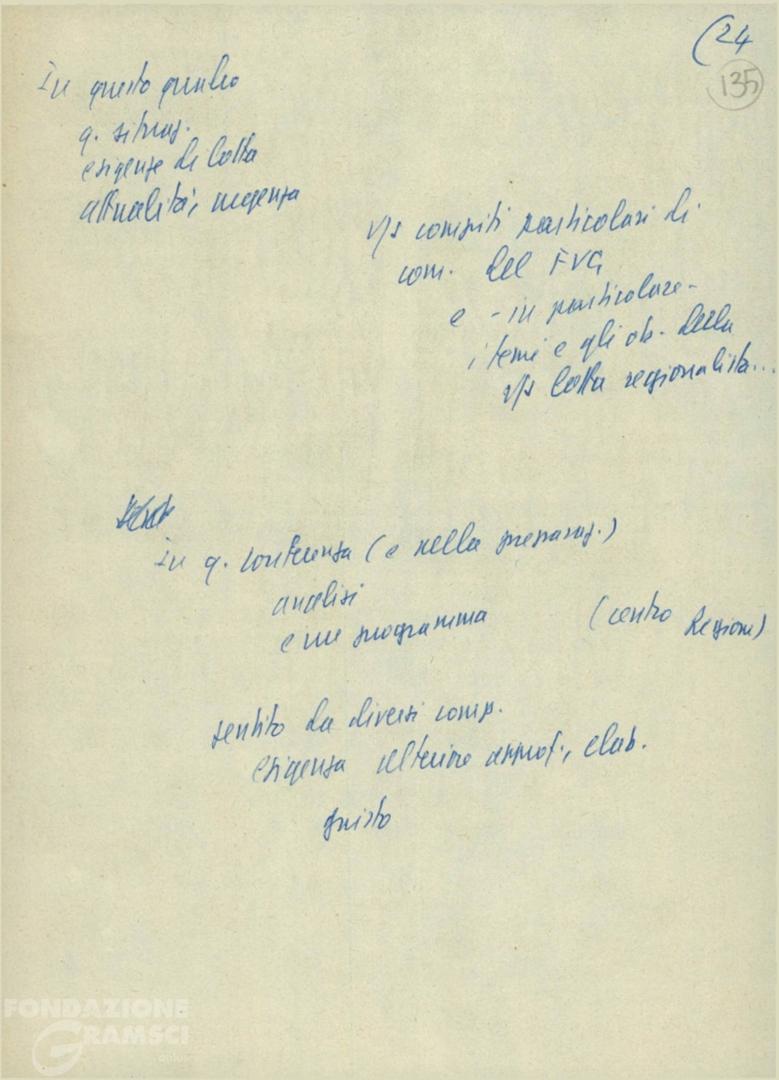 (24
135
In questo quadro
q. situaz.
esigenze di lotta
attualità, urgenza
n/s compiti particolari di
com. del FVG
e - in particolare -
i temi e gli ob. della
n/s lotta regionalista...
in q. conferenza (e nella preparaz.)
analisi
e un programma (centro Regione)
sentito da diversi comp.
esigenza ulteriore approf., elab.
giusto
FONDAZIONE
GRAMSCI
onlus